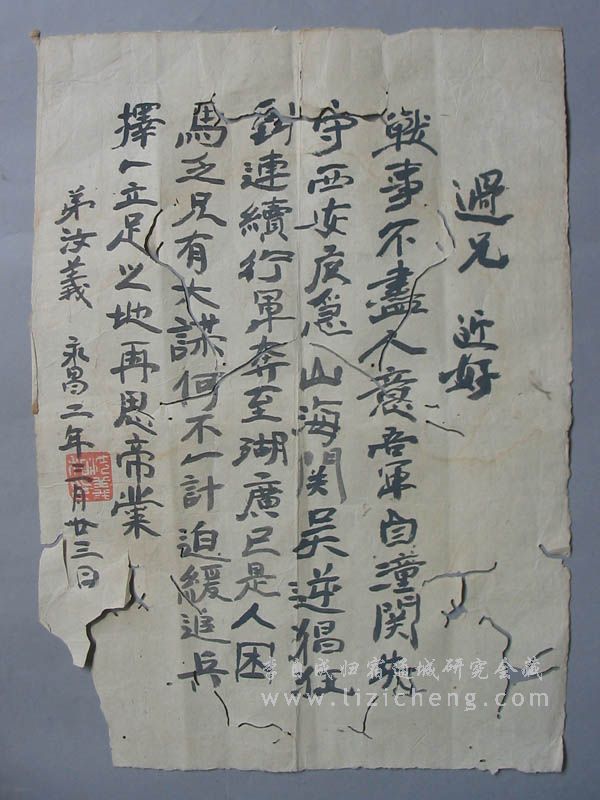 過兄 近好
戰事不盡人意吾軍自潼関失
守西安危急山海関吴逆猖狂
到連續行軍奔至湖廣已是人困
馬乏兄有大謀何不一計迫緩追兵
擇一立足之地再思帝業
弟汝義 永昌二年三月廿三日
李自成归宿通城研究会藏
www.lizicheng.com